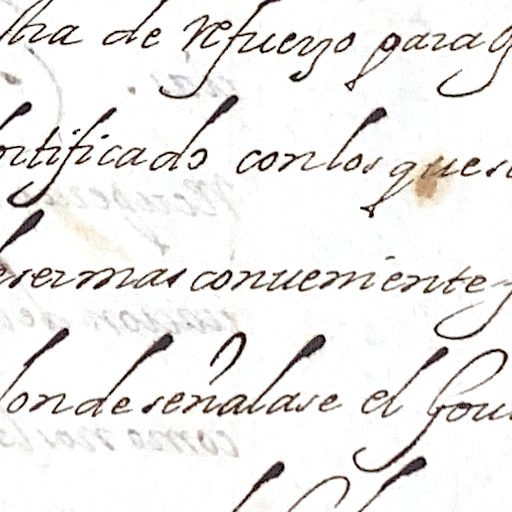 tra de refuerzo para q
ortificado con los que se
e ser mas conueniente y
donde señalase el Gou